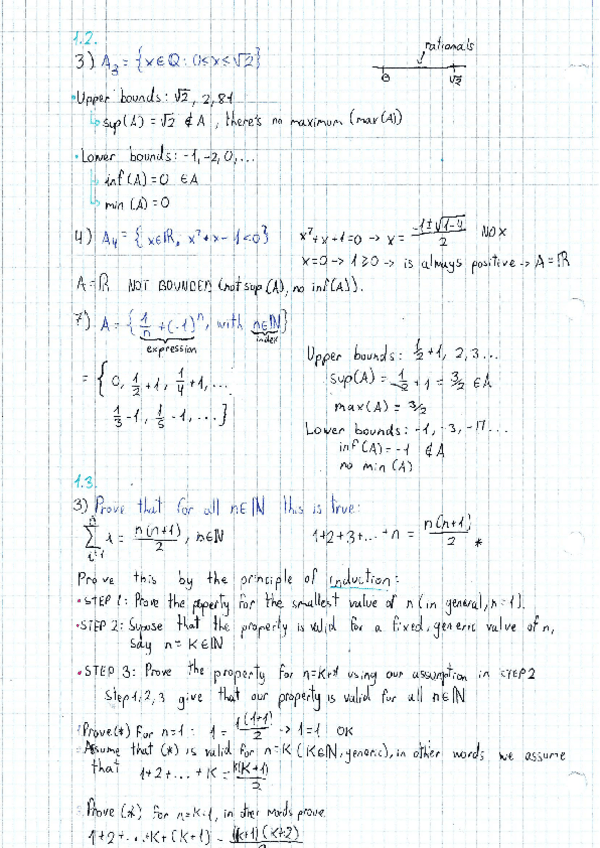 1.2.
3) A₃ = {x∈Q: 0≤x≤√2}
rationals
0 √2
• Upper bounds: √2, 2, 84
sup(A) = √2 ∉ A, there's no maximum (max(A))
• Lower bounds: -1, -2, 0, ...
inf(A) = 0 ∈A
min(A) = 0
4) A₄ = {x∈ℝ, x²+x-1<0}
x²+x+1=0 → x = (-1±√(1-4))/2 NO X
x=0 → 1≥0 → is always positive → A=ℝ
A=ℝ NOT BOUNDED (not sup(A), no inf(A)).
7) A = {1/n + (-1)ⁿ, with n∈ℕ}
expression index
= {0, 1/2+1, 1/4+1, ...
1/3-1, 1/5-1, ...}
Upper bounds: 1/2+1, 2, 3...
sup(A) = 1/2+1 = 3/2 ∈A
max(A) = 3/2
Lower bounds: -1, -3, -π...
inf(A) = -1 ∉A
no min(A)
1.3.
3) Prove that for all n∈ℕ this is true:
∑ⁿᵢ₌₁ i = n(n+1)/2, n∈ℕ 1+2+3+...+n = n(n+1)/2 *
Prove this by the principle of induction:
• STEP 1: Prove the property for the smallest value of n (in general, n=1).
• STEP 2: Supose that the property is valid for a fixed, generic value of n,
say n=K∈ℕ
• STEP 3: Prove the property for n=K+1 using our assumption in STEP 2
Step 1, 2, 3 give that our property is valid for all n∈ℕ
Prove(*) for n=1: 1 = 1(1+1)/2 → 1=1 OK
Assume that (*) is valid for n=K (K∈ℕ, generic), in other words we assume
that 1+2+...+K = K(K+1)/2
Prove (*) for n=K+1, in other words prove
1+2+...+K+(K+1) = (K+1)(K+2)